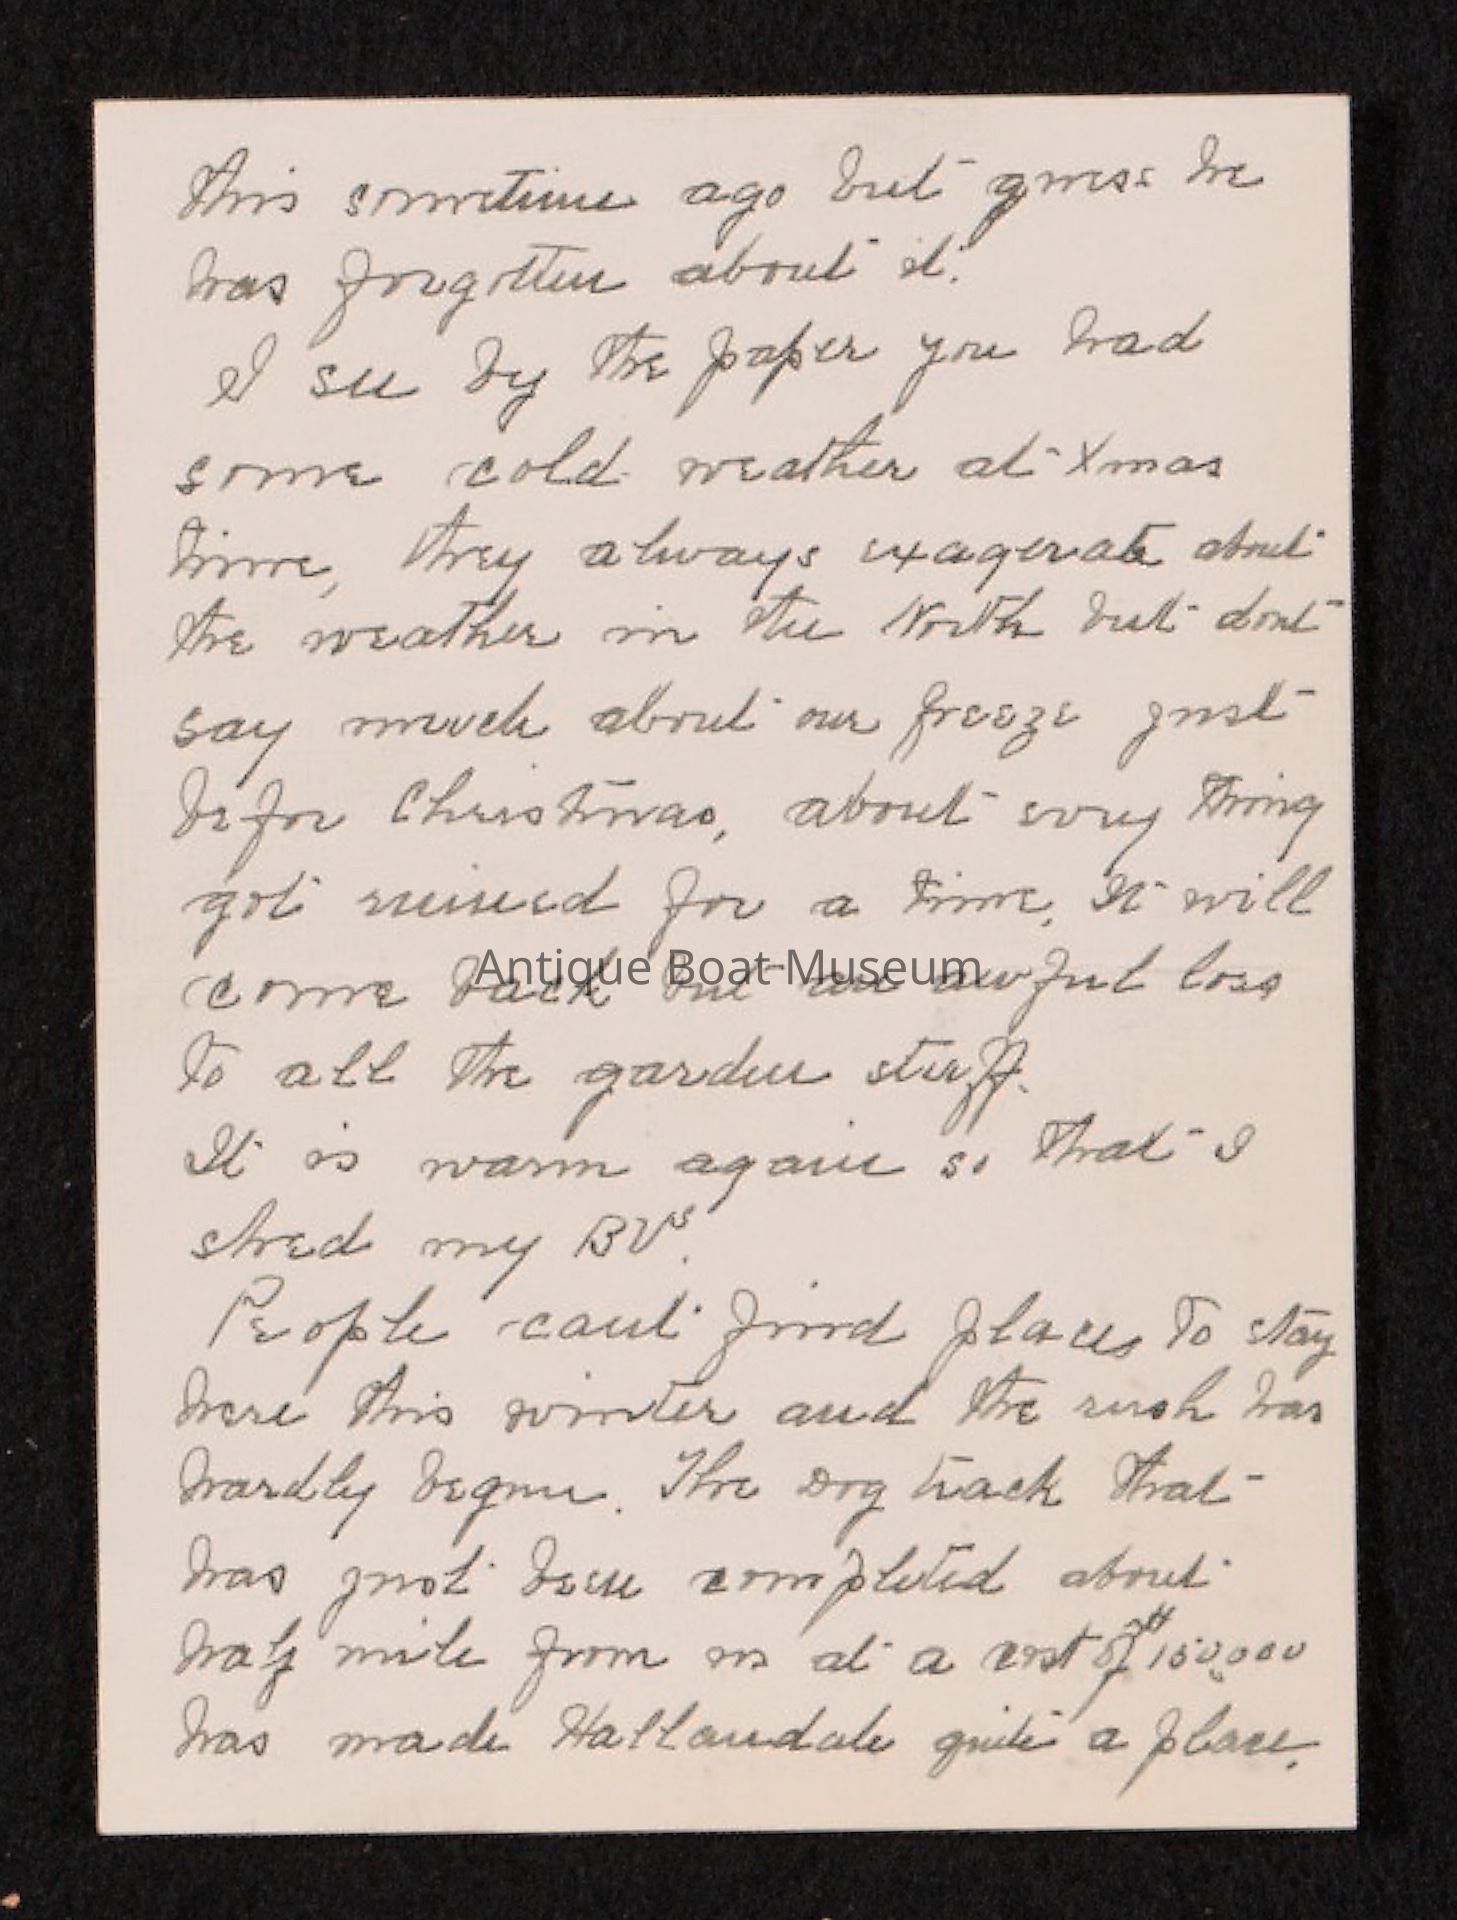 this sometime ago but guess he
has forgotten about it.
I see by the paper you had
some cold weather at Xmas
time, they always exagerate about
the weather in the North but dont
say much about our freeze just
befor Christmas, about evry thing
got ruined for a time. It will
come back but an awful loss
Antique Boat Museum
to all the garden stuff.
It is warm again so that I
shed my BVs.
People cant find places to stay
here this winter and the rush has
hardly begun. The Dog track that
has just been completed about
half mile from us at a cost of $150,000
has made Hallandale quite a place.